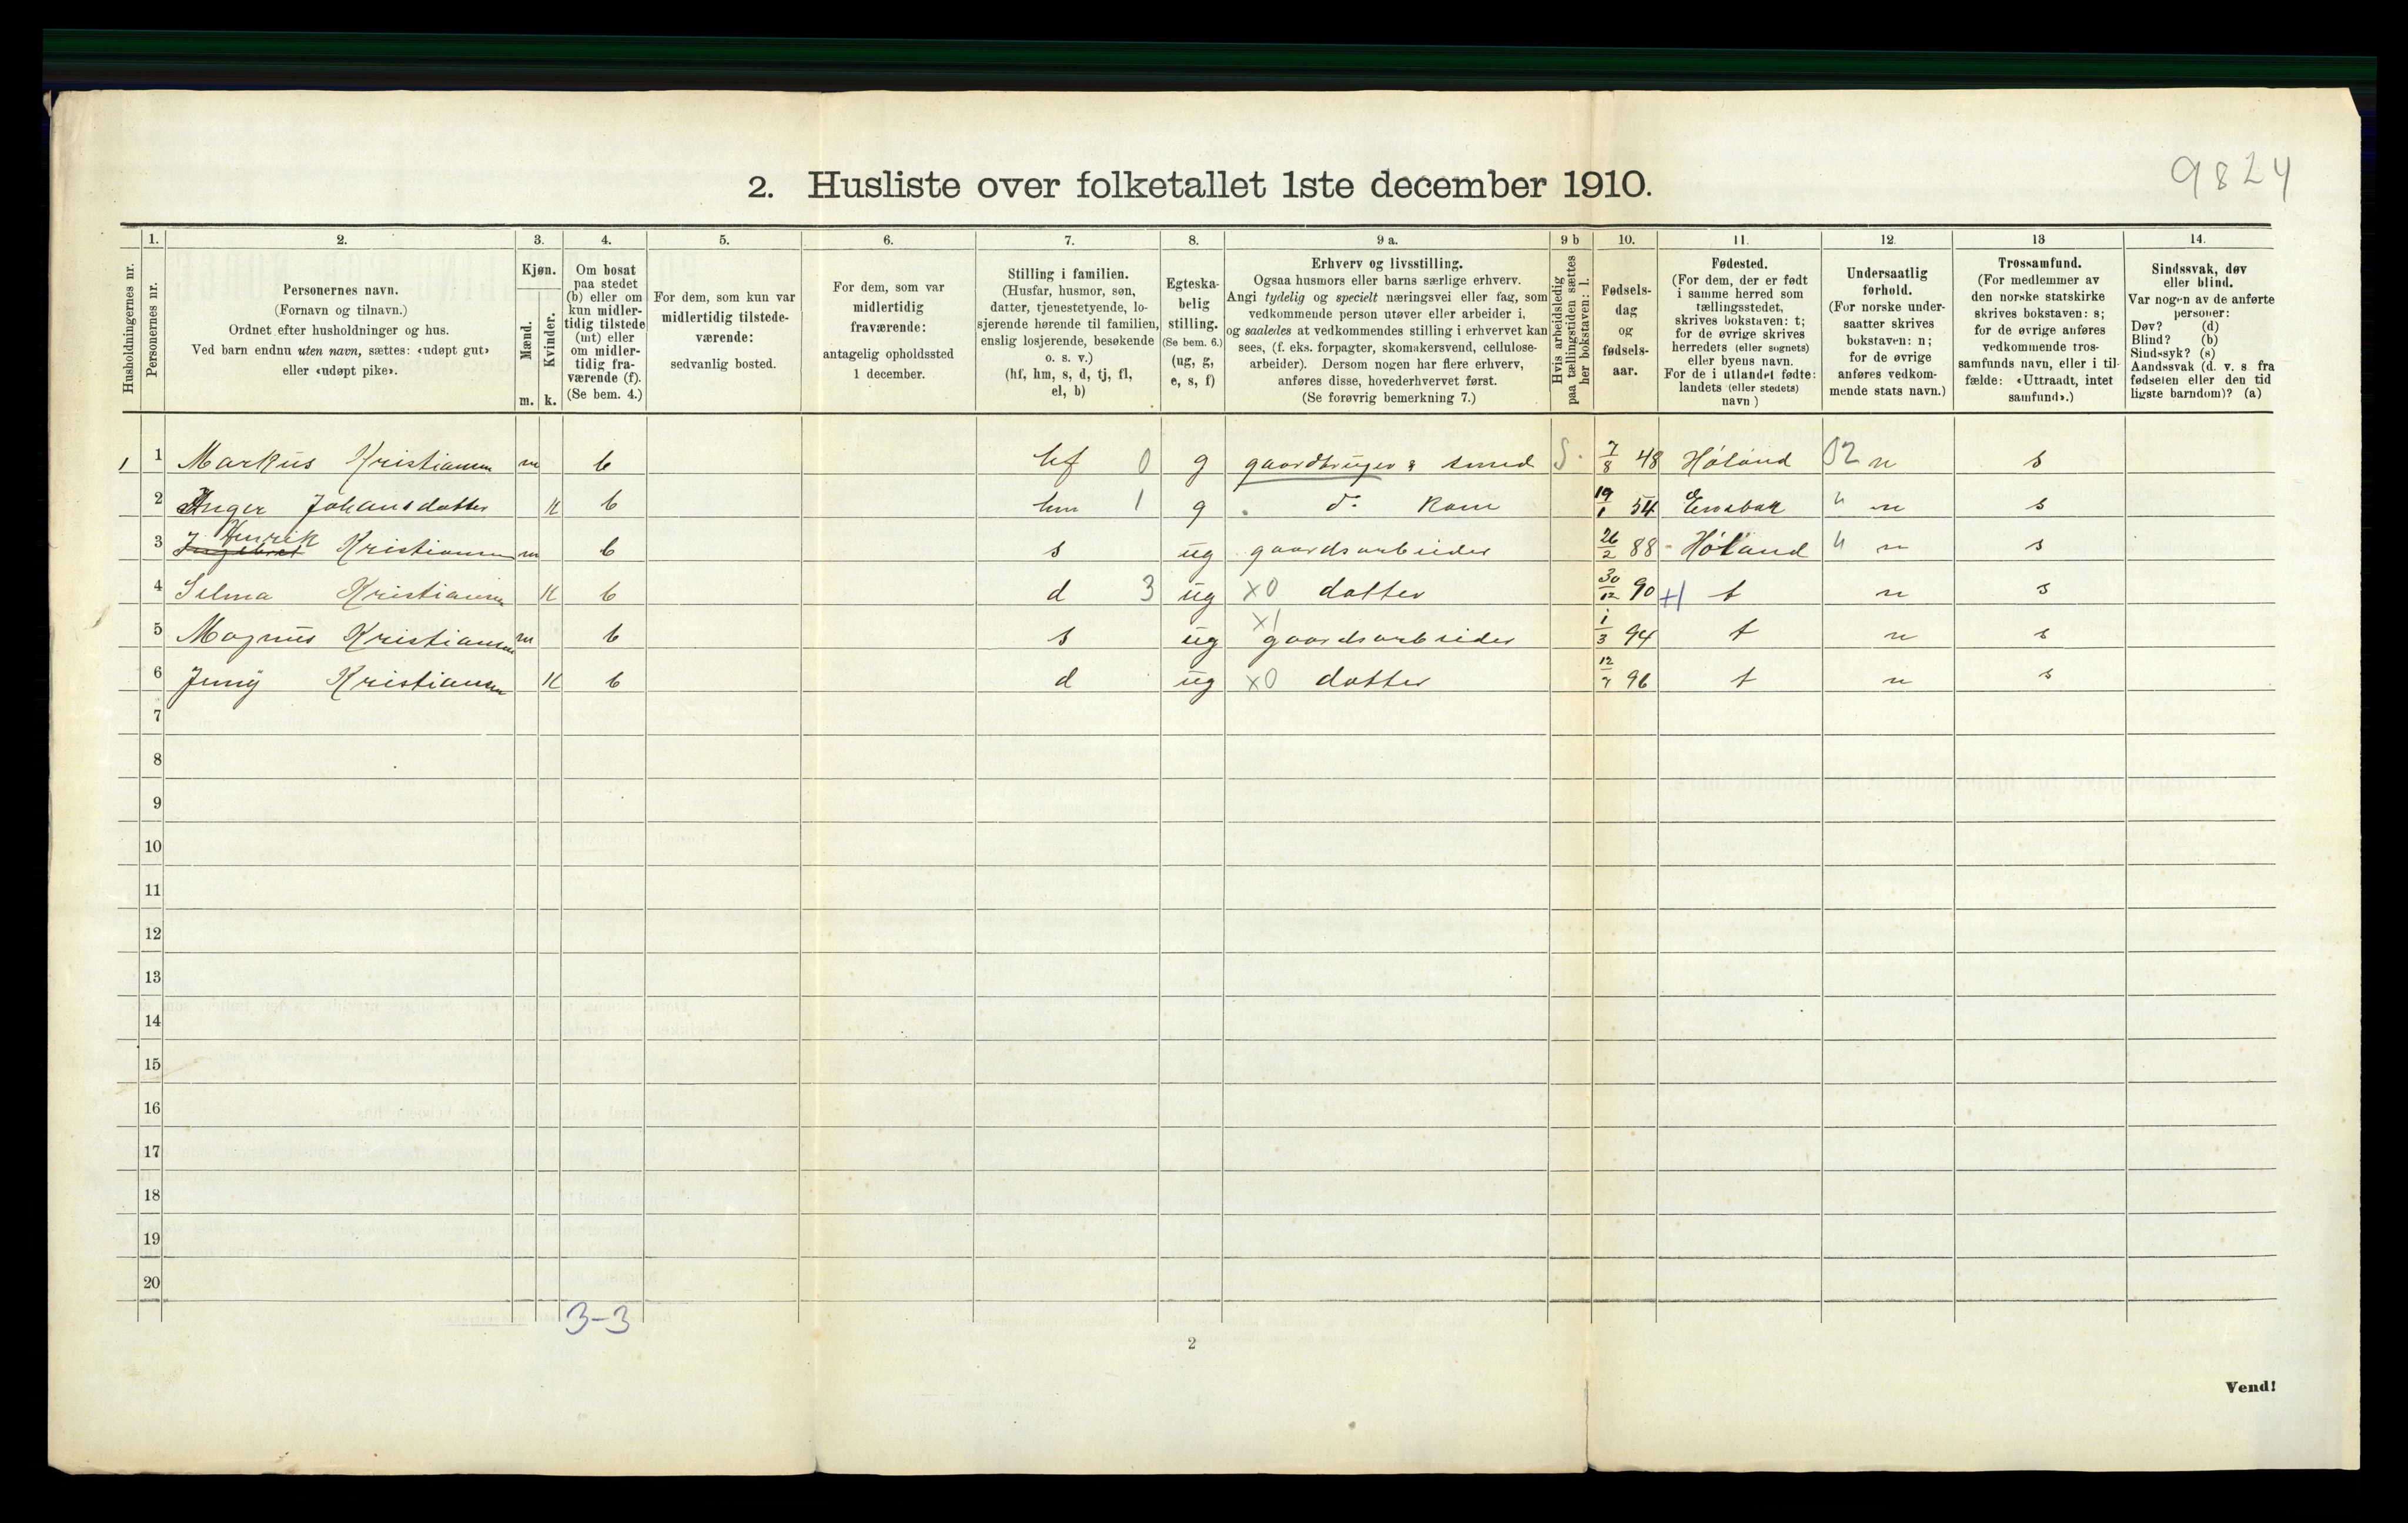 9824
2. Husliste over folketallet 1ste december 1910.
Husholdningernes nr.
1.
Personernes nr.
2.
Personernes navn.
(Fornavn og tilnavn.)
Ordnet efter husholdninger og hus.
Ved barn endnu uten navn, sættes: «udøpt gut»
eller «udøpt pike».
3.
Kjøn.
Mænd.
Kvinder.
m. k.
4.
Om bosat
paa stedet
(b) eller om
kun midler-
tidig tilstede
(mt) eller
om midler-
tidig fra-
værende (f).
(Se bem. 4.)
5.
For dem, som kun var
midlertidig tilstede-
værende:
sedvanlig bosted.
6.
For dem, som var
midlertidig
fraværende:
antagelig opholdssted
1 december.
7.
Stilling i familien.
(Husfar, husmor, søn,
datter, tjenestetyende, lo-
sjerende hørende til familien,
enslig losjerende, besøkende
o. s. v.)
(hf, hm, s, d, tj, fl,
el, b)
8.
Egteska-
belig
stilling.
(Se bem. 6.)
(ug, g,
e, s, f)
9 a.
Erhverv og livsstilling.
Ogsaa husmors eller barns særlige erhverv.
Angi tydelig og specielt næringsvei eller fag, som
vedkommende person utøver eller arbeider i,
og saaledes at vedkommendes stilling i erhvervet kan
sees, (f. eks. forpagter, skomakersvend, cellulose-
arbeider). Dersom nogen har flere erhverv,
anføres disse, hovederhvervet først.
(Se forøvrig bemerkning 7.)
9 b
Hvis arbeidsledig
paa tællingstiden sættes
her bokstaven: l.
10.
Fødsels-
dag
og
fødsels-
aar.
11.
Fødested.
(For dem, der er født
i samme herred som
tællingsstedet,
skrives bokstaven: t;
for de øvrige skrives
herredets (eller sognets)
eller byens navn.
For de i utlandet fødte:
landets (eller stedets)
navn )
12.
Undersaatlig
forhold.
(For norske under-
saatter skrives
bokstaven: n;
for de øvrige
anføres vedkom-
mende stats navn.)
13
Trossamfund.
(For medlemmer av
den norske statskirke
skrives bokstaven: s;
for de øvrige anføres
vedkommende tros-
samfunds navn, eller i til-
fælde: «Uttraadt, intet
samfund».)
14.
Sindssvak, døv
eller blind.
Var nogen av de anførte
personer:
Døv? (d)
Blind? (b)
Sindssyk? (s)
Aandssvak (d. v. s fra
fødselen eller den tid
ligste barndom)? (a)
1 1 Markus Kristiansen m b hf 0 g gaardbruger & smed S. 7/8 48 Höland 02 n s
2 Inger Johansdatter K b hm 1 g do Kone 19/1 54 Enebak " n s
Henrik
3 Kristiansen m b s ug gaardsarbeider 26/2 88 - Höland " n s
4 Selma Kristiansen K b d 3 ug x0 datter 30/12 90 +1 t n s
5 Magnus Kristiansen m b s ug x1 gaardsarbeider 1/3 94 t n s
6 Jenny Kristiansen K b d ug x0 datter 12/7 96 t n s
7
8
9
10
11
12
13
14
15
16
17
18
19
20
3-3
2
Vend!